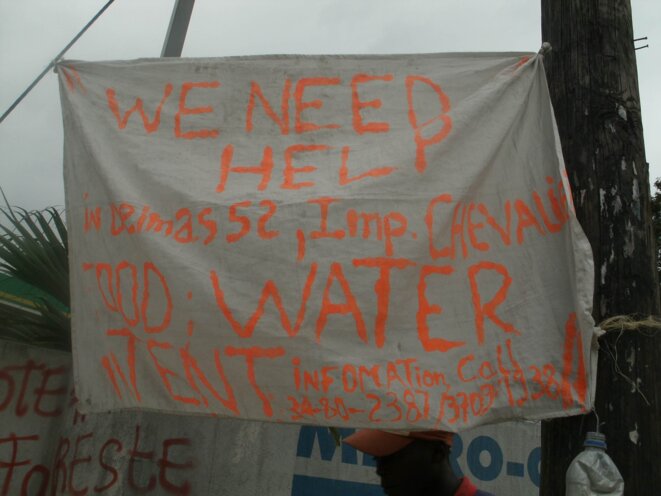 WE NEED
HELP
in Delmas 52, Imp. CHEVALIE
FOOD; WATER
TENT INFOMATION, Call
34-80-2387/3702-1138
FORESTE
RO-